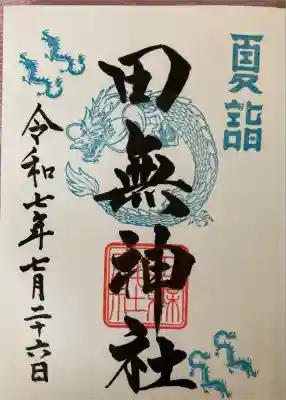 夏詣
田無神社
令和七年七月二十六日